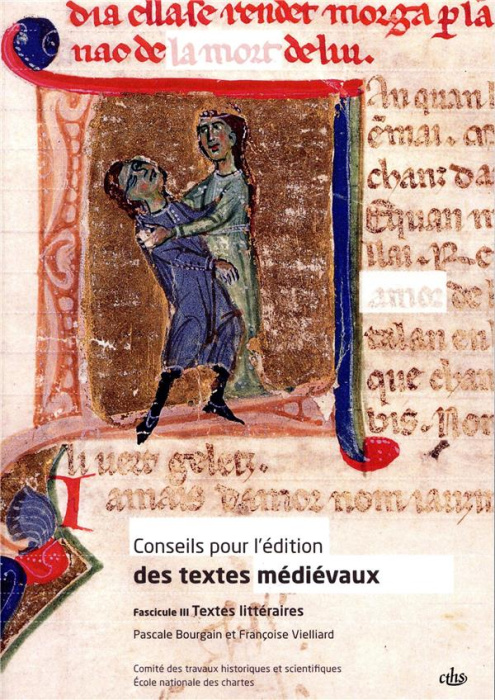 dia ellase rendet morga p la
nao de la mort de lui.
An quan
chant
Equan
amor de
que chan
vis. Non
li uert
Iamais damor nom iauzir
Conseils pour l'édition
des textes médiévaux
Fascicule III Textes littéraires
Pascale Bourgain et Françoise Vielliard
Comité des travaux historiques et scientifiques
École nationale des chartes
cths